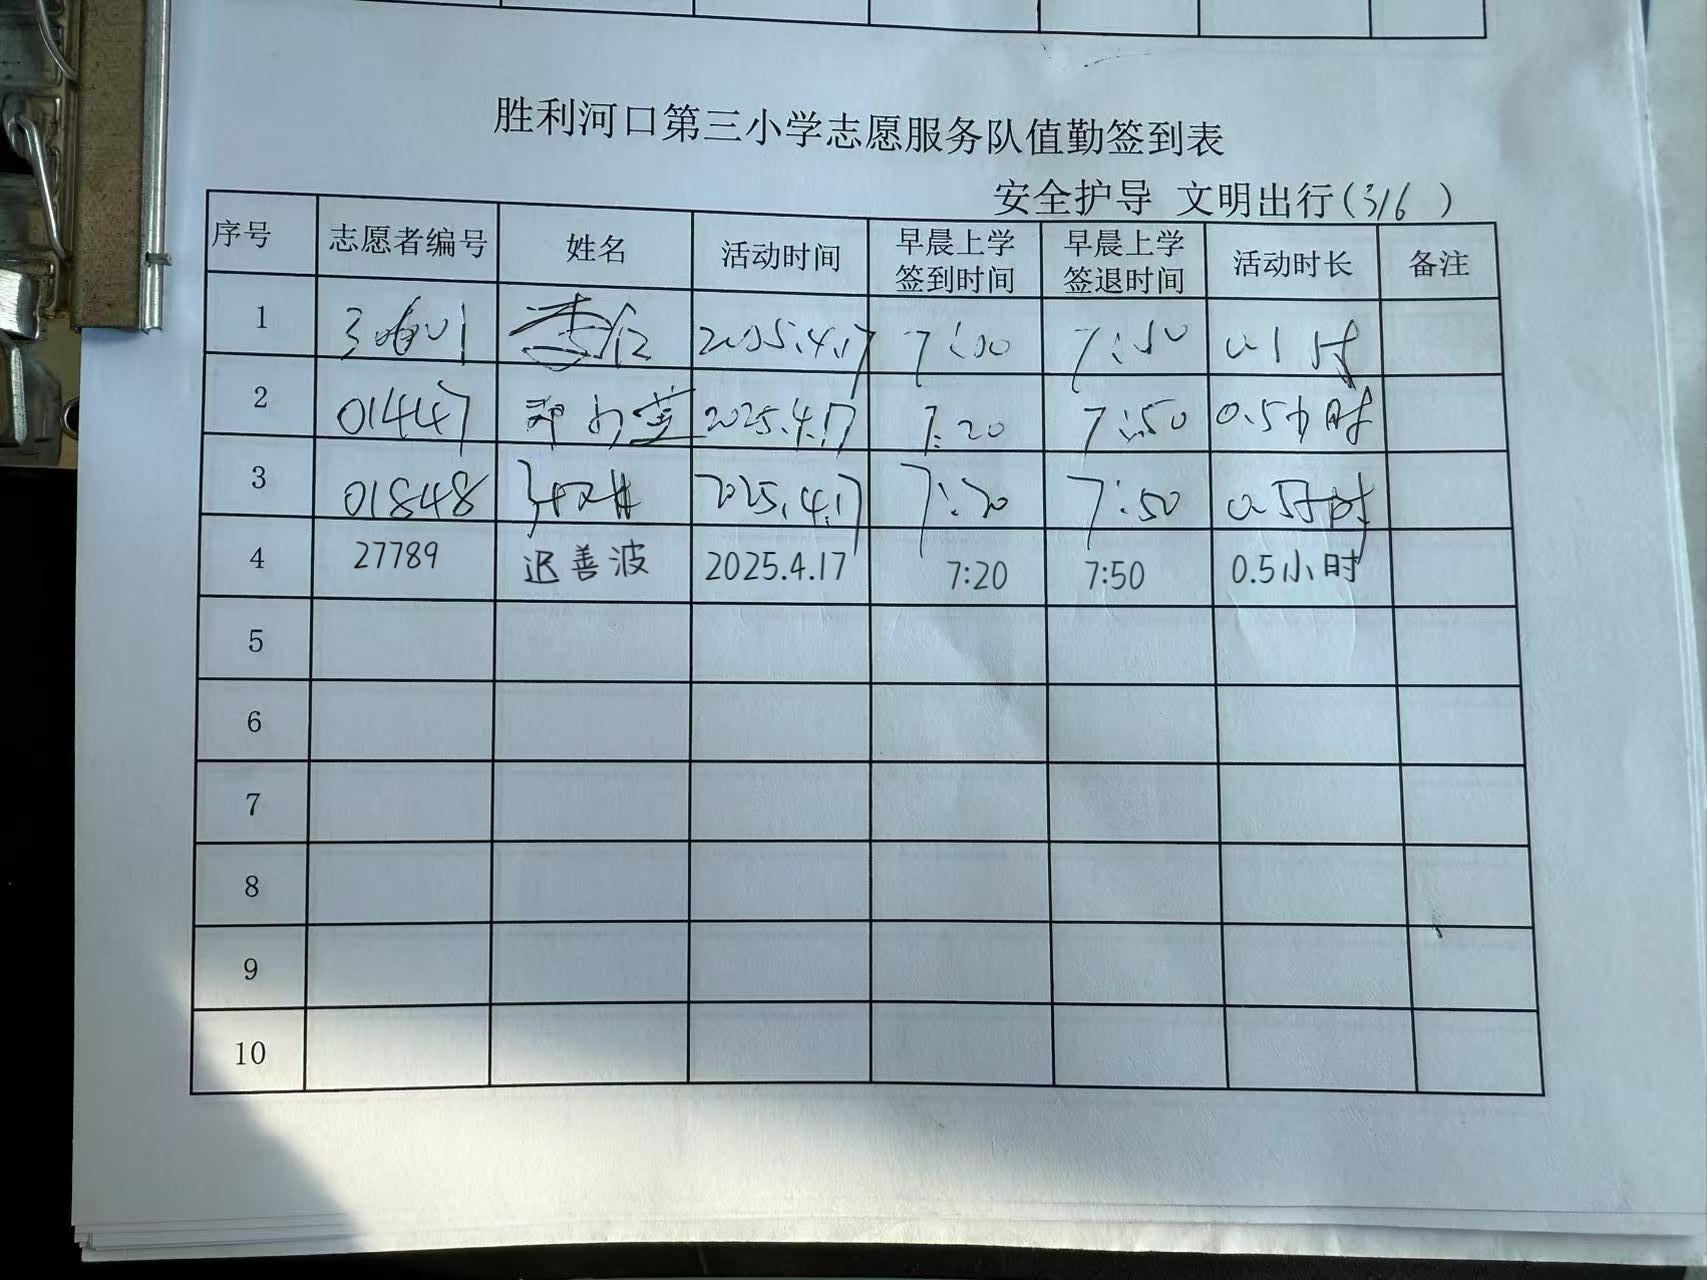 胜利河口第三小学志愿服务队值勤签到表
安全护导 文明出行(316 )
序号 志愿者编号 姓名 活动时间 早晨上学签到时间 早晨上学签退时间 活动时长 备注
1 2025.4.17
2 01447 2025.4.17 7:20 7:50 0.5小时
3 01848 2025.4.17 7:20 7:50 0.5小时
4 27789 迟善波 2025.4.17 7:20 7:50 0.5小时
5
6
7
8
9
10